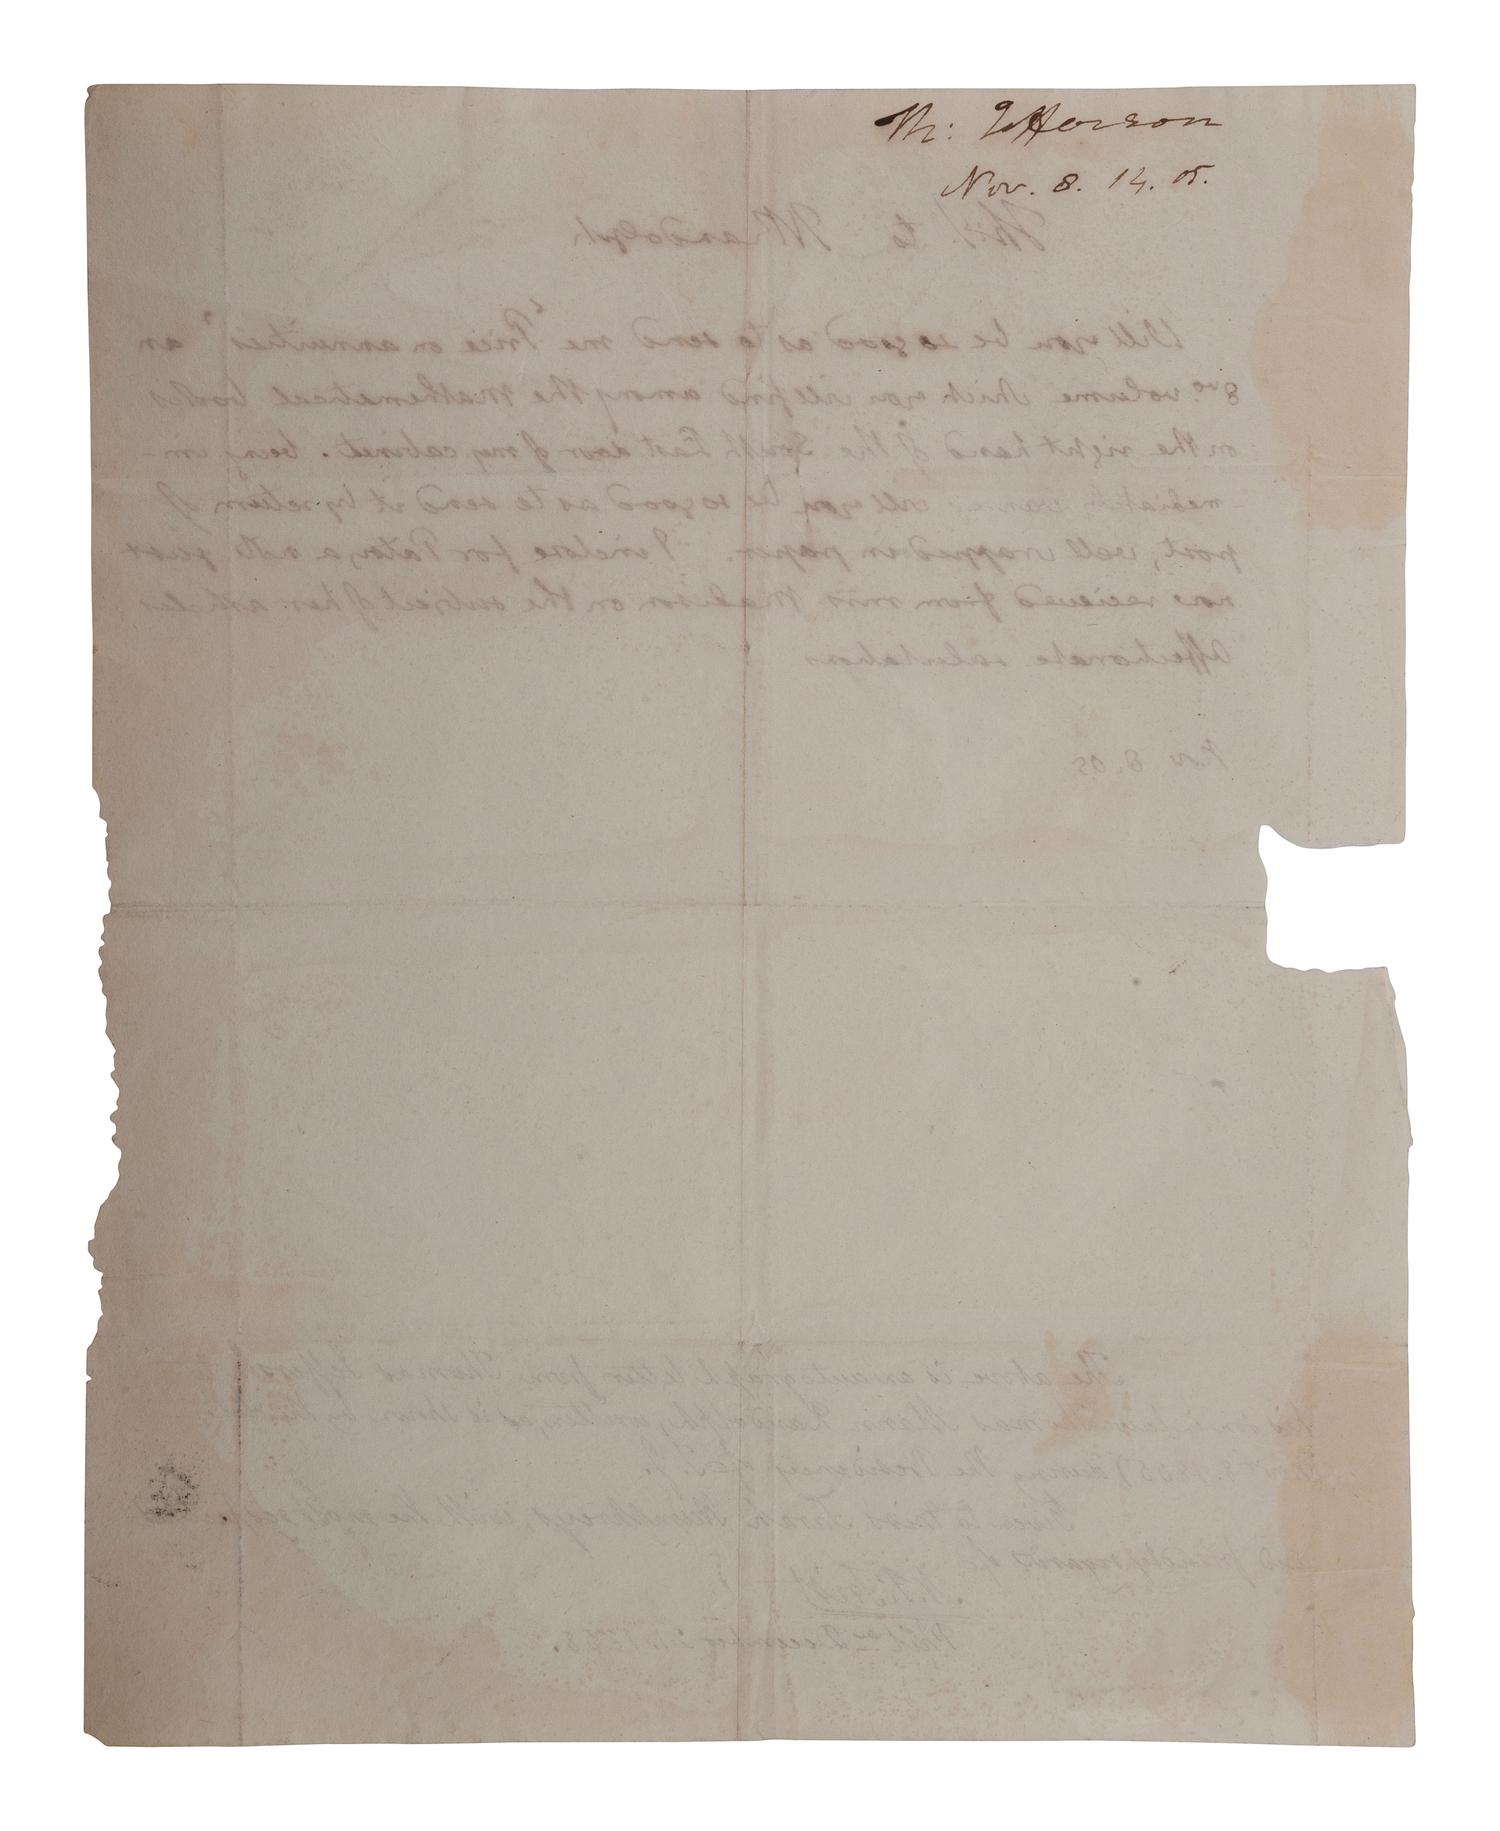 Th: Jefferson
Nov. 8. 14. 05.
Th:J. to TMRandolph
Will you be so good as to send me "Price on annuities" an
8vo. volume which you will find among the mathematical books
on the right hand of the South East door of my cabinet. being im-
-mediately will you be so good as to send it by return of
post, well wrapped in paper. I inclose for Patsy, a note just
now recieved from mrs Madison on the subject of her articles
Affectionate salutations
Nov 8. 05
The above is an autograph letter from Thomas Jefferson
his son in law Thomas Mann Randolph, written, as is shown by the
1805 during the Presidency of T.J.
Given to Miss Sarah Humphreys, with the
and friendly regards of
December 1855.